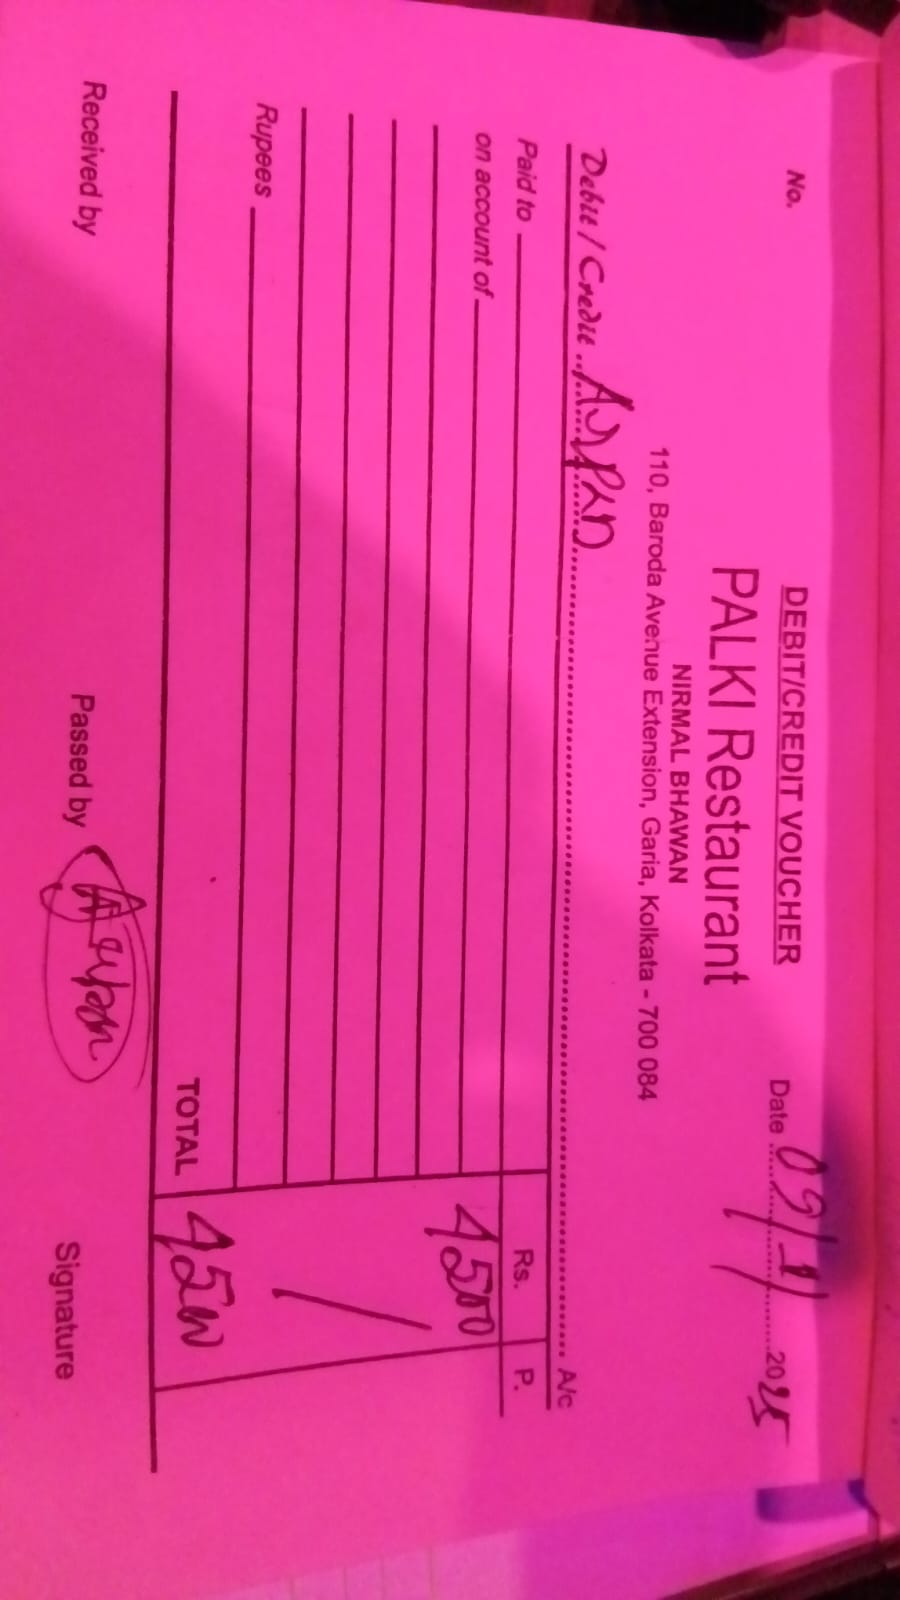 DEBIT/CREDIT VOUCHER
No.
Date 09/11/2025
PALKI Restaurant
NIRMAL BHAWAN
110, Baroda Avenue Extension, Garia, Kolkata - 700 084
Debit / Credit ............ A/c
Paid to
Rs. P.
on account of
4500
Rupees
TOTAL 4500
Received by
Passed by
Signature